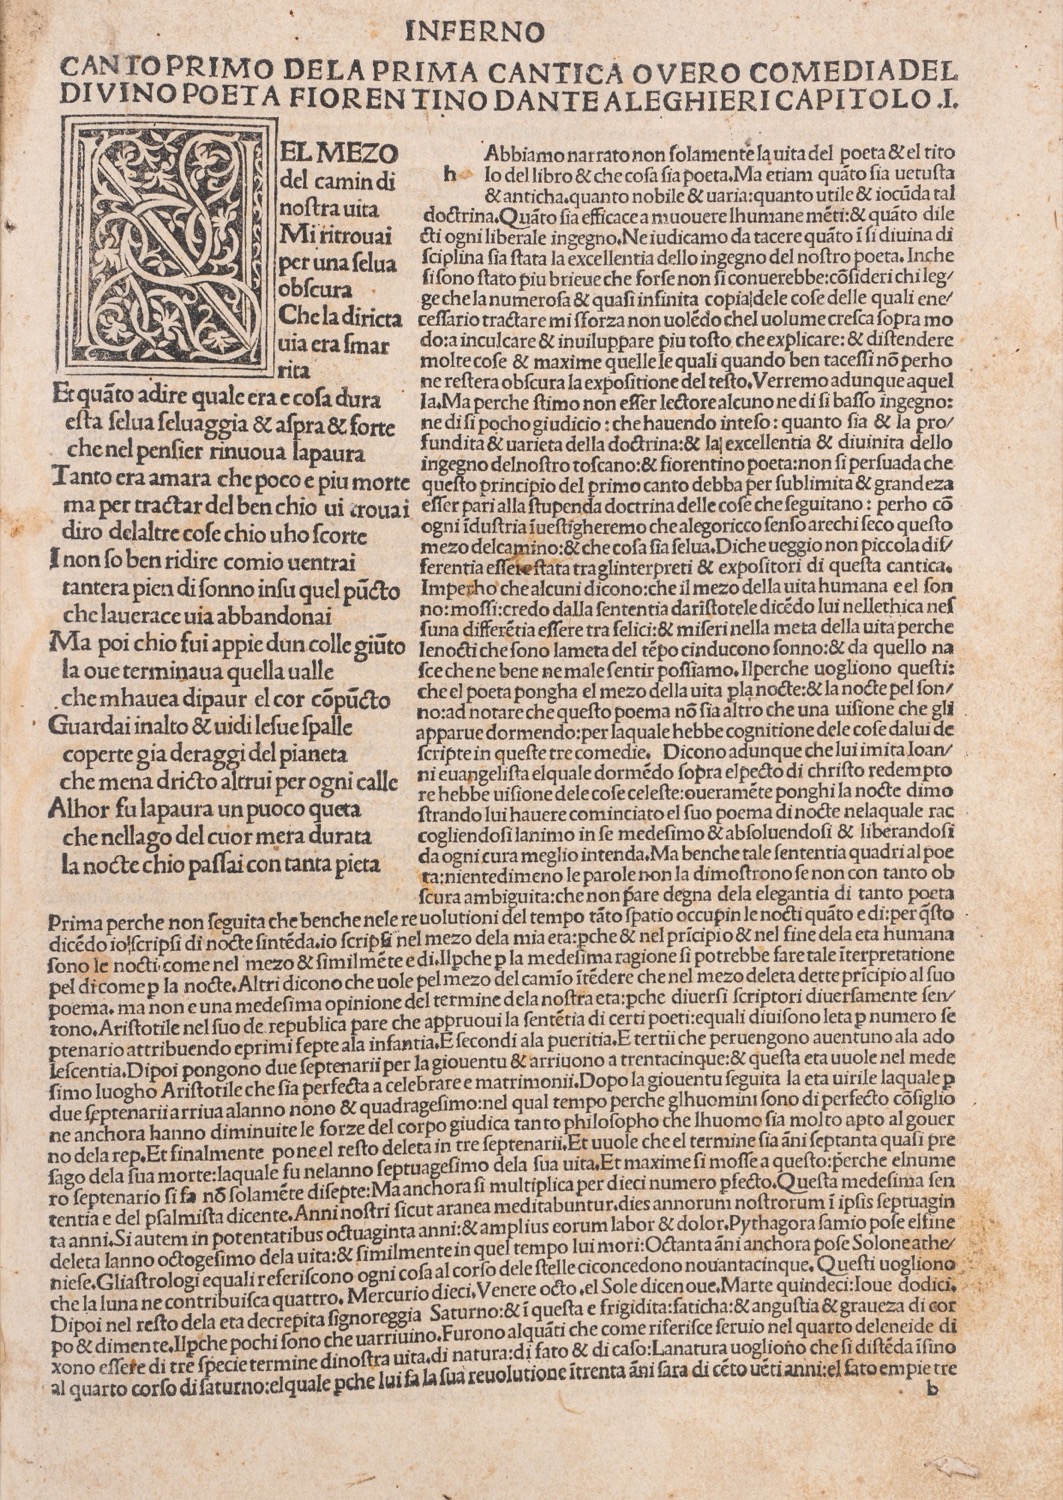 INFERNO
CANTO PRIMO DE LA PRIMA CANTICA OVERO COMEDIA DEL
DIVINO POETA FIORENTINO DANTE ALEGHIERI CAPITOLO .I.
NEL MEZO
del camin di
noſtra uita
Mi ritrouai
per una ſelua
obſcura
Che la diricta
uia era ſmar
rita
Et quāto adire quale era e coſa dura
eſta ſelua ſeluaggia & aſpra & forte
che nel penſier rinuoua lapaura
Tanto era amara che poco e piu morte
ma per tractar del ben chio ui trouai
diro delaltre coſe chio uho ſcorte
I non ſo ben ridire comio uentrai
tantera pien di ſonno inſu quel pūcto
che lauerace uia abbandonai
Ma poi chio fui appie dun colle giūto
la oue terminaua quella ualle
che mhauea dipaur el cor cōpūcto
Guardai inalto & uidi leſue ſpalle
coperte gia deraggi del pianeta
che mena dricto altrui per ogni calle
Alhor fu lapaura un puoco queta
che nellago del cuor mera durata
la nocte chio paſſai con tanta pieta
hAbbiamo narrato non ſolamente la uita del poeta & el tito
lo del libro & che coſa ſia poeta. Ma etiam quāto ſia uetuſta
& anticha. quanto nobile & uaria: quanto utile & iocūda tal
doctrina. Quāto ſia efficace a muouere lhumane mēti: & quāto dile
cti ogni liberale ingegno. Ne iudicamo da tacere quāto ī ſi diuina di
ſciplina ſia ſtata la excellentia dello ingegno del noſtro poeta. Inche
ſi ſono ſtato piu brieue che forſe non ſi conuerebbe: cōſideri chi leg/
ge che la numeroſa & quaſi infinita copia dele coſe delle quali ene/
ceſſario tractare mi ſforza non uolēdo chel uolume creſca ſopra mo
do: a inculcare & inuiluppare piu toſto che explicare: & diſtendere
molte coſe & maxime quelle le quali quando ben taceſſi nō perho
ne reſtera obſcura la expoſitione del teſto. Verremo adunque aquel
la. Ma perche ſtimo non eſſer lectore alcuno ne di ſi baſſo ingegno:
ne di ſi pocho giudicio: che hauendo inteſo: quanto ſia & la pro/
fundita & uarieta della doctrina: & la excellentia & diuinita dello
ingegno delnoſtro toſcano: & fiorentino poeta: non ſi perſuada che
queſto principio del primo canto debba per ſublimita & grandeza
eſſer pari alla ſtupenda doctrina delle coſe che ſeguitano: perho cō
ogni īduſtria īueſtigheremo che alegoricco ſenſo arechi ſeco queſto
mezo delcamino: & che coſa ſia ſelua. Diche ueggio non piccola dif/
ferentia eſſere ſtata tra glinterpreti & expoſitori di queſta cantica.
Imperho che alcuni dicono: che il mezo della uita humana e el ſon
no: moſſi: credo dalla ſententia dariſtotele dicēdo lui nellethica neſ
ſuna differētia eſſere tra felici: & miſeri nella meta della uita perche
le nocti che ſono la meta del tēpo cinducono ſonno: & da quello na
ſce che ne bene ne male ſentir poſſiamo. Ilperche uogliono queſti:
che el poeta pongha el mezo della uita pla nocte: & la nocte pel ſon/
no: ad notare che queſto poema nō ſia altro che una uiſione che gli
apparue dormendo: per laquale hebbe cognitione dele coſe dalui de
ſcripte in queſte tre comedie. Dicono adunque che lui imita Ioan/
ni euangeliſta elquale dormēdo ſopra elpecto di chriſto redempto
re hebbe uiſione dele coſe celeſte: oueramēte ponghi la nocte dimo
ſtrando lui hauere cominciato el ſuo poema di nocte nelaquale rac
cogliendoſi lanimo in ſe medeſimo & abſoluendoſi & liberandoſi
da ogni cura meglio intenda. Ma benche tale ſententia quadri al poe
ta: nientedimeno le parole non la dimoſtrono ſe non con tanto ob
ſcura ambiguita: che non pare degna dela elegantia di tanto poeta
Prima perche non ſeguita che benche nele reuolutioni del tempo tāto ſpatio occupin le nocti quāto e di: per q̄ſto
dicēdo io ſcripſi di nocte ſintēda. io ſcripſi nel mezo dela mia eta: pche & nel prīcipio & nel fine dela eta humana
ſono le nocti: come nel mezo & ſimilmēte e di. Ilpche p la medeſima ragione ſi potrebbe fare tale īterpretatione
pel di come p la nocte. Altri dicono che uole pel mezo del camīo ītēdere che nel mezo deleta dette prīcipio al ſuo
poema. ma non e una medeſima opinione del termine dela noſtra eta: pche diuerſi ſcriptori diuerſamente ſen/
tono. Ariſtotile nel ſuo de republica pare che appruoui la ſentētia di certi poeti: equali diuiſono leta p numero ſe
ptenario attribuendo e primi ſepte ala infantia. E ſecondi ala pueritia. E tertii che peruengono auentuno ala ado
leſcentia. Dipoi pongono due ſeptenarii per la giouentu & arriuono a trentacinque: & queſta eta uuole nel mede
ſimo luogho Ariſtotile che ſia perfecta a celebrare e matrimonii. Dopo la giouentu ſeguita la eta uirile laquale p
due ſeptenarii arriua alanno nono & quadrageſimo: nel qual tempo perche glhuomini ſono di perfecto cōſiglio
ne anchora hanno diminuite le forze del corpo giudica tanto philoſopho che lhuomo ſia molto apto al gouer
no dela rep. Et finalmente pone el reſto deleta in tre ſeptenarii. Et uuole che el termine ſia āni ſeptanta quaſi pre
ſago dela ſua morte: laquale fu nelanno ſeptuageſimo dela ſua uita. Et maxime ſi moſſe a queſto: perche elnume
ro ſeptenario ſi fa nō ſolamēte diſepte: Ma anchora ſi multiplica per dieci numero pfecto. Queſta medeſima ſen
tentia e del pſalmiſta dicente. Anni noſtri ſicut aranea meditabuntur. dies annorum noſtrorum ī ipſis ſeptuagin
ta anni. Si autem in potentatibus octuaginta anni: & amplius eorum labor & dolor. Pythagora ſamio poſe elfine
deleta lanno octogeſimo dela uita: & ſimilmente in quel tempo lui mori: Octanta āni anchora poſe Solone athe/
nieſe. Gliaſtrologi equali referiſcono ogni coſa al corſo dele ſtelle ciconcedono nouantacinque. Queſti uogliono
che la luna ne contribuiſca quattro. Mercurio dieci. Venere octo. el Sole dicenoue. Marte quindeci: Ioue dodici.
Dipoi nel reſto dela eta decrepita ſignoreggia Saturno: & ī queſta e frigidita: faticha: & anguſtia & graueza di cor
po & dimente. Ilpche pochi ſono che uarriuino. Furono alquāti che come riferiſce ſeruio nel quarto deleneide di
xono eſſere di tre ſpecie termine dinoſtra uita. di natura: di fato & di caſo: La natura uogliono che ſi diſtēda īſino
al quarto corſo di ſaturno: elquale pche lui fa la ſua reuolutione ītrenta āni ſara di cēto uēti anni: el fato empie tre
b